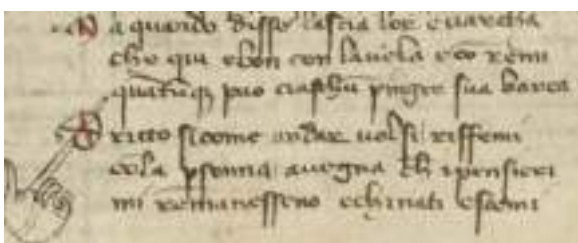 Na quando disse lascia lor e varcha
che qui e bon con la vela e cō remi
quātūq; puo ciaschū pīger sua barca
Dritto si come andar vuolsi riffemi
cō la psona avegna ch i pensieri
mi rimanesseno e chinati e scemi